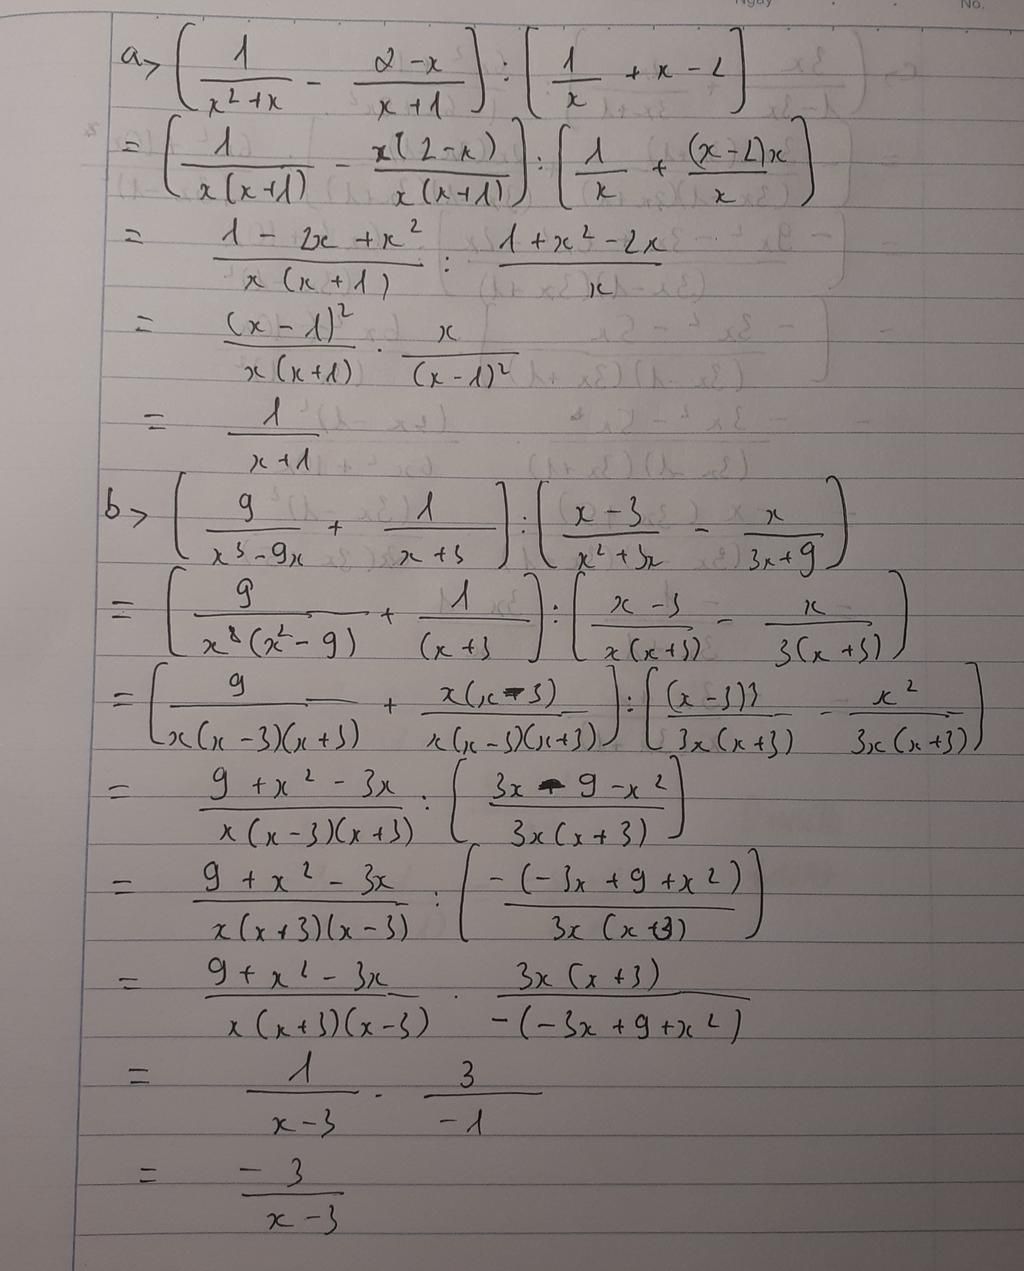 Ngày No.
a> (1/(x²+x) - (2-x)/(x+1)) : [1/x + x - 2]
= (1/(x(x+1)) - x(2-x)/(x(x+1))) : (1/x + (x-2)x/x)
= (1 - 2x + x²)/(x(x+1)) : (1 + x² - 2x)/x
= (x-1)²/(x(x+1)) . x/(x-1)²
= 1/(x+1)
b> (9/(x³-9x) + 1/(x+3)) : ((x-3)/(x²+3x) - x/(3x+9))
= (9/(x(x²-9)) + 1/(x+3) : ((x-3)/(x(x+3)) - x/(3(x+3)))
= (9/(x(x-3)(x+3)) + x(x-3)/(x(x-3)(x+3))) : ((x-3)3/(3x(x+3)) - x²/(3x(x+3)))
= (9 + x² - 3x)/(x(x-3)(x+3)) : ((3x - 9 - x²)/(3x(x+3)))
= (9 + x² - 3x)/(x(x+3)(x-3)) : (-(-3x + 9 + x²)/(3x(x+3)))
= (9 + x² - 3x)/(x(x+3)(x-3)) . 3x(x+3)/(-(-3x + 9 + x²))
= 1/(x-3) . 3/(-1)
= -3/(x-3)